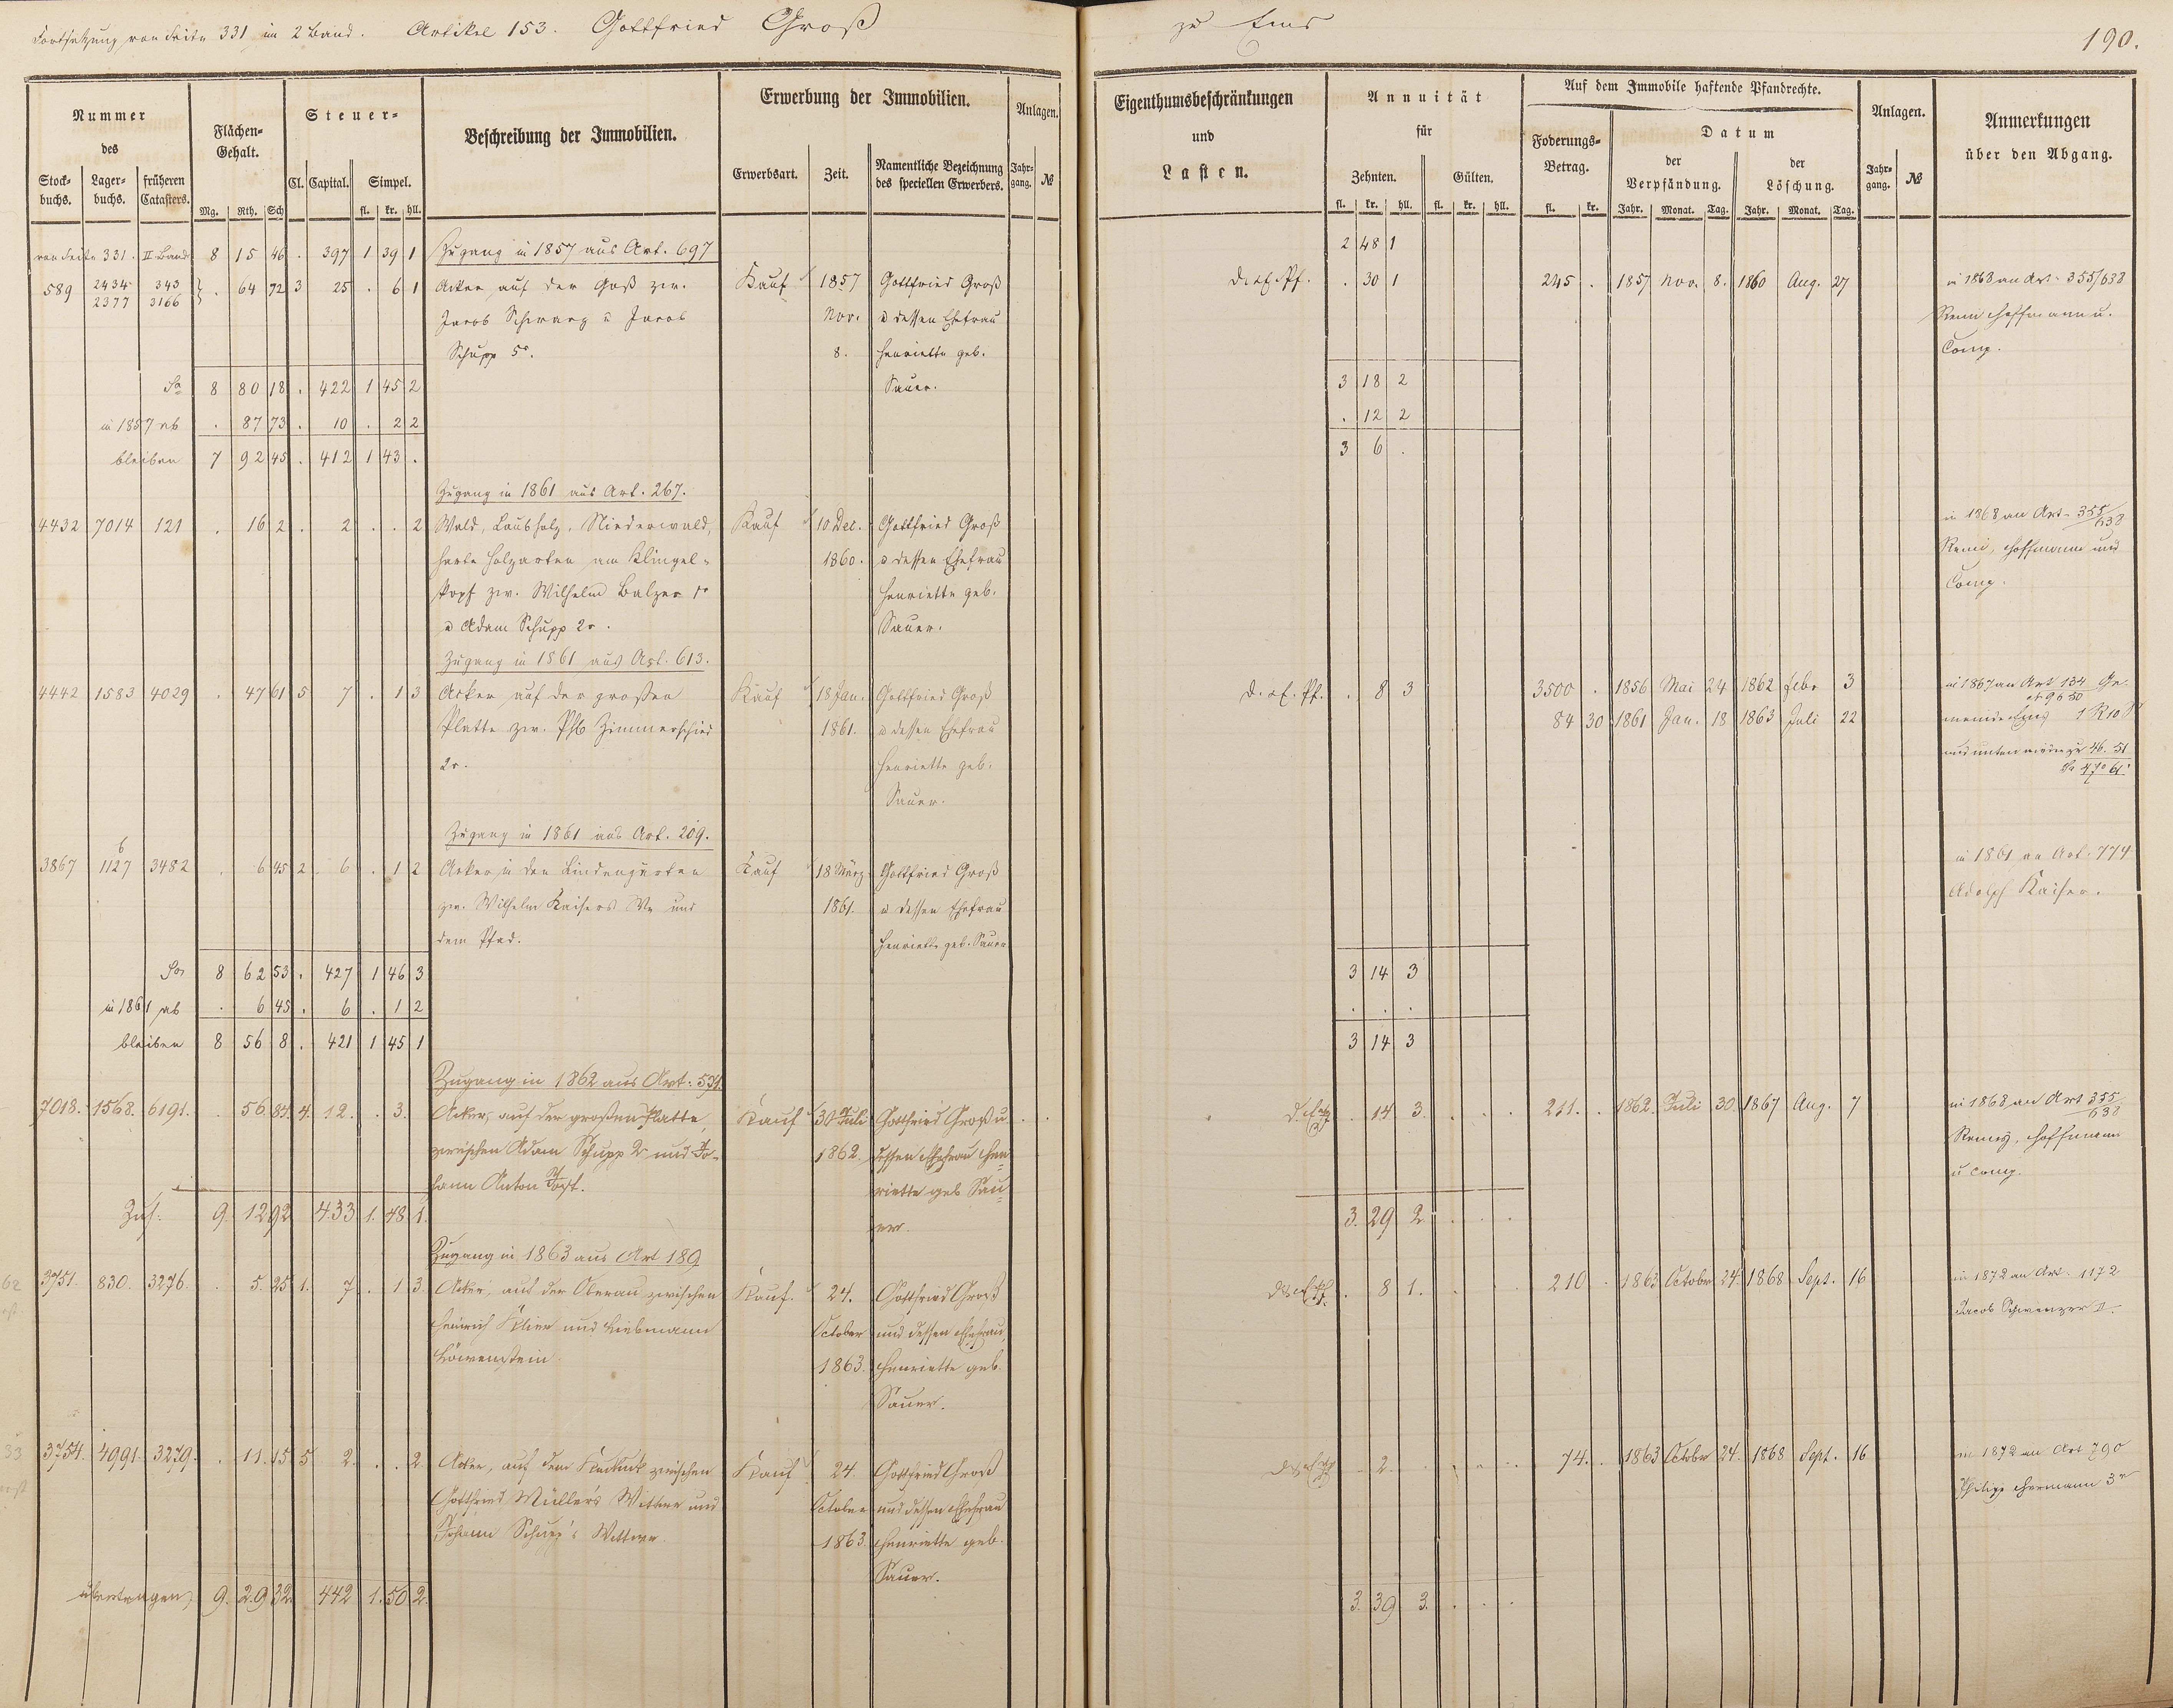 Fortsetzung von Seite 331 im 2 Band. Artikel 153. Gottfried Groß zu Ems
190.
Nummer des
Stock-buchs. Lager-buchs. früheren Catasters.
Flächen-Gehalt.
Mg. Rth. Sch
Steuer-
Cl. Capital. Simpel.
fl. kr. hll.
Beschreibung der Immobilien.
Erwerbung der Immobilien.
Erwerbsart. Zeit. Namentliche Bezeichnung des speciellen Erwerbers.
Anlagen.
Jahr-gang. №
Eigenthumsbeschränkungen und Lasten.
Annuität für
Zehnten. Gülten.
fl. kr. hll. fl. kr. hll.
Auf dem Immobile haftende Pfandrechte.
Foderungs-Betrag.
fl. kr.
Datum
der Verpfändung. der Löschung.
Jahr. Monat. Tag. Jahr. Monat. Tag.
Anlagen.
Jahr-gang. №
Anmerkungen über den Abgang.
von Seite 331. II Band 8 15 46 . 397 1 39 1 Zugang in 1857 aus Art. 697 2 48 1
589 2434 343 } . 64 72 3 25 . 6 1 Acker auf der Gaß zw. Kauf 1857 Gottfried Groß . 30 1 245 . 1857 Nov. 8. 1860 Aug. 27 in 1868 an Art. 355/638
2377 3166 Jacob Schwarz u Jacob Nov. u dessen Ehefrau Remi Hoffmann u.
Schupp 5r. 8. Henriette geb. Comp.
Sa 8 80 18 . 422 1 45 2 Sauer. 3 18 2
in 1857 ab . 87 73 . 10 . 2 2 . 12 2
bleiben 7 92 45 . 412 1 43 . 3 6 .
Zugang in 1861 aus Art. 267.
4432 7014 121 . 16 2 . 2 . . 2 Wald, Laubholz, Niederwald, Kauf 10 Dec. Gottfried Groß in 1868 an Art. 355/638
harte Holzarten am Klingel- 1860. u dessen Ehefrau Remi, Hoffmann und
kopf zw. Wilhelm Balzer 1r Henriette geb. Comp.
u Adam Schupp 2r. Sauer.
Zugang in 1861 aus Art. 613.
4442 1583 4029 . 47 61 5 7 . 1 3 Acker auf der großen Kauf 18 Jan. Gottfried Groß . 8 3 3500 . 1856 Mai 24 1862 Febr 3 in 1867 an Art 134 Ge-
Platte zw. Phl Zimmerschied 1861. u dessen Ehefrau 84 30 1861 Jan. 18 1863 Juli 22 meinde Ems 1 R 10
2r. Henriette geb. 46. 51
Sauer. 47 61
Zugang in 1861 aus Art. 209.
6
3867 1127 3482 . 6 45 2 6 . 1 2 Acker in den Lindengarten Kauf 18 März Gottfried Groß in 1861 an Art. 774
zw. Wilhelm Kaisers We und 1861. u dessen Ehefrau Adolph Kaiser.
dem Pfad. Henriette geb. Sauer
Sa 8 62 53 . 427 1 46 3 3 14 3
in 1861 ab . 6 45 . 6 . 1 2 . . .
bleiben 8 56 8 . 421 1 45 1 3 14 3
Zugang in 1862 aus Art. 531.
7018. 1568. 6191. . 56 84. 4. 12. . 3. Acker, auf der großen Platte, Kauf 30 Juli Gottfried Groß u. . 14 3. 211. . 1862. Juli 30. 1867 Aug. 7 in 1868 an Art 355/638
zwischen Adam Schupp 2r und Jo- 1862. dessen Ehefrau Hen- Remy, Hoffmann
hann Anton Jost. riette geb Sau- u Comp.
Zus. 9. 12 92. 433 1. 48 1. er. 3. 29 2
Zugang in 1863 aus Art 189
3751. 830. 3276. . 5. 25 1. 7 . 1 3. Acker, auf der Oberau zwischen Kauf. 24. Gottfried Groß . 8 1. 210 . 1863 October 24. 1868 Sept. 16 in 1872 an Art. 1172
Heinrich und Liebmann October und dessen Ehefrau, Jacob Schwenzer II.
Löwenstein. 1863. Henriette geb.
Sauer.
3754. 4991. 3279. . 11. 15 5. 2. . . 2. Acker, auf dem zwischen Kauf 24. Gottfried Groß . 2. 74. . 1863 October 24. 1868 Sept. 16 in 1872 an Art 790
Gottfried Müller's Wittwe und October und dessen Ehefrau Philipp Hermann 3r
Johann Schupp's Wittwe. 1863. Henriette geb.
Sauer.
übertragen 9. 29 32. 442 1. 50 2. 3. 39 3.